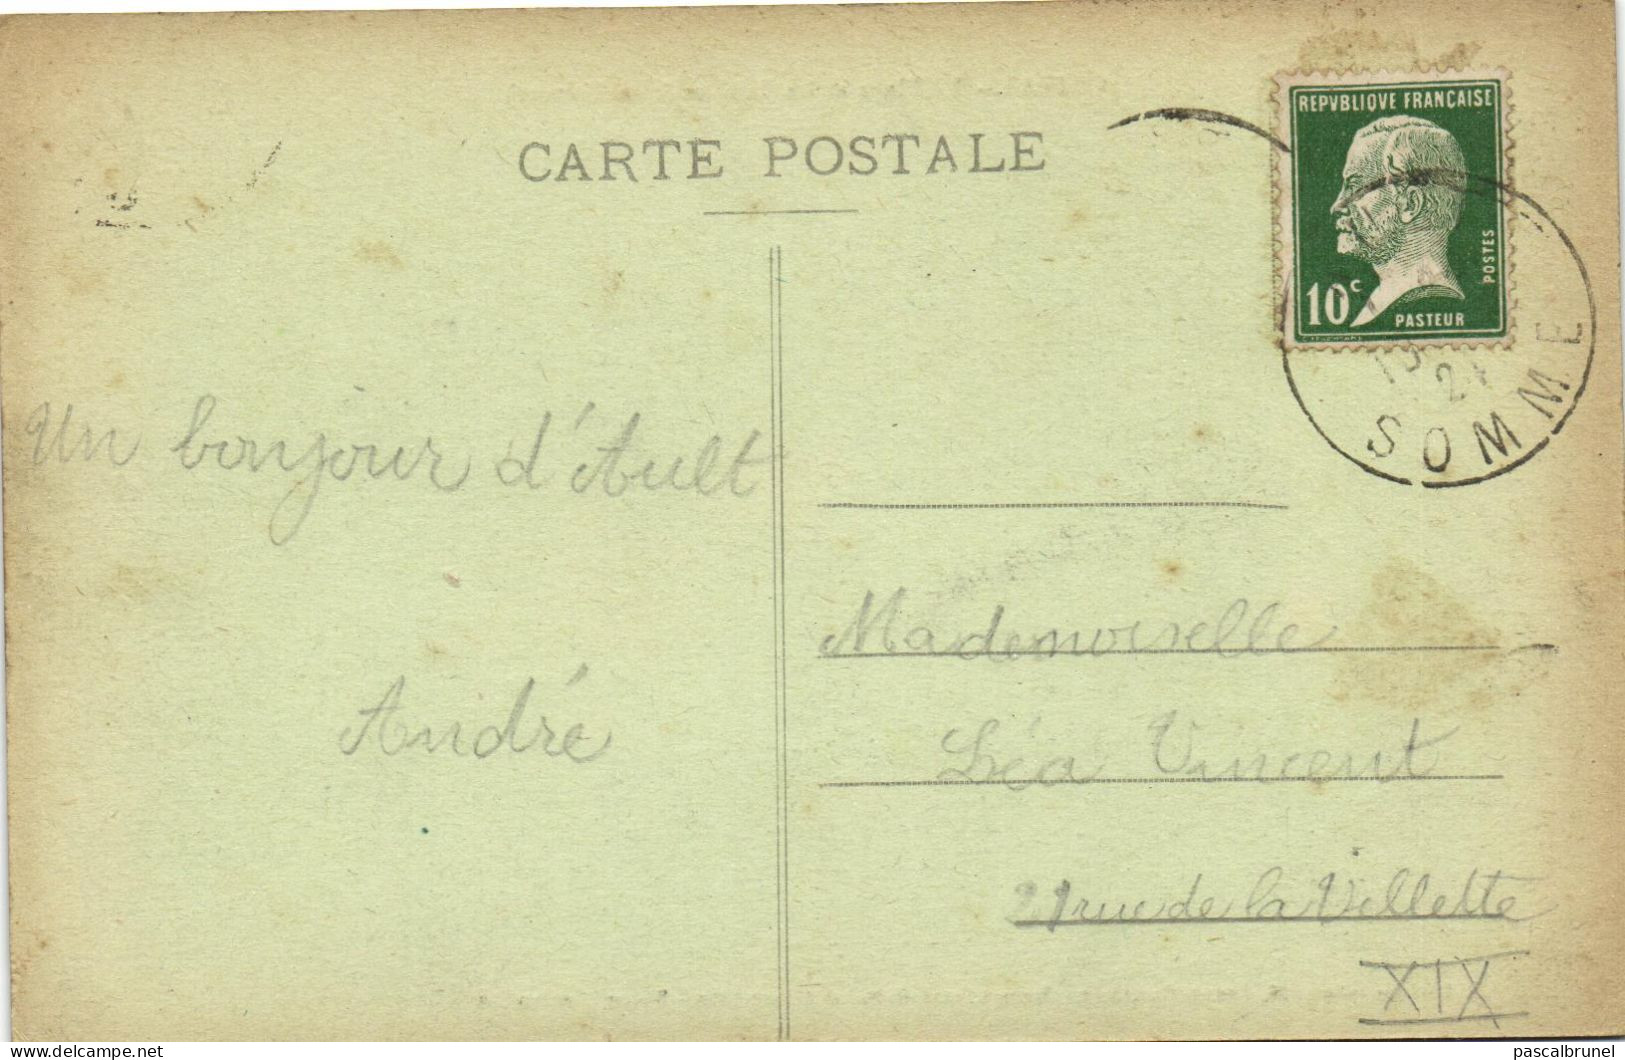 CARTE POSTALE
REPVBLIQVE FRANÇAISE
POSTES
10c
PASTEUR
SOMME
Un bonjour d'Ault
André
Mademoiselle
Léa Vincent
rue de la Villette
XIX
delcampe.net
pascalbrunel